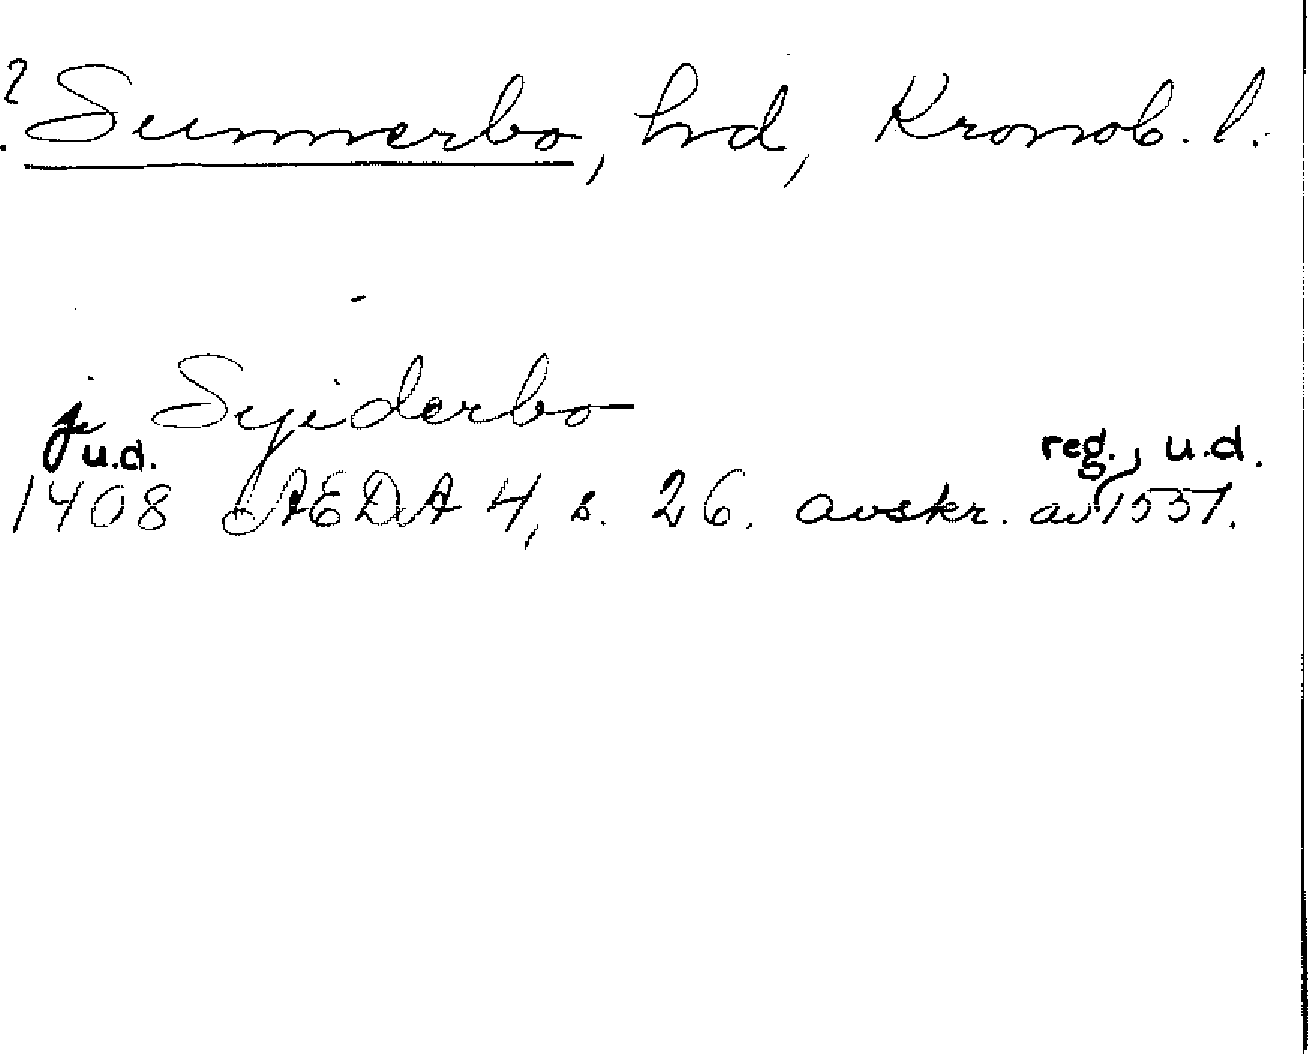 ? Sunnerbo, hd, Kronob. l.
j Syiderbo
u.d. reg., u.d.
1408 ÆDA 4, s. 26. avskr. av 1551.